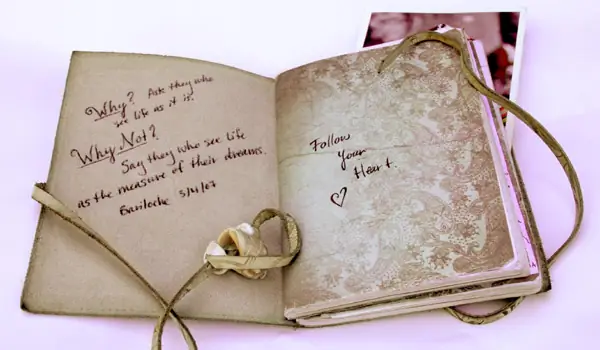 Why? Ask they who
see life as it is.
Why Not?
Say they who see life
as the measure of their dreams.
Bariloche 5/4/07
Follow
Your
Heart.
♡